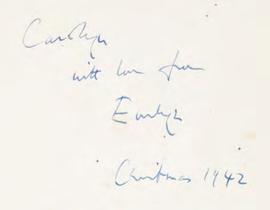 Carolyn
with love from
Evelyn
Christmas 1942